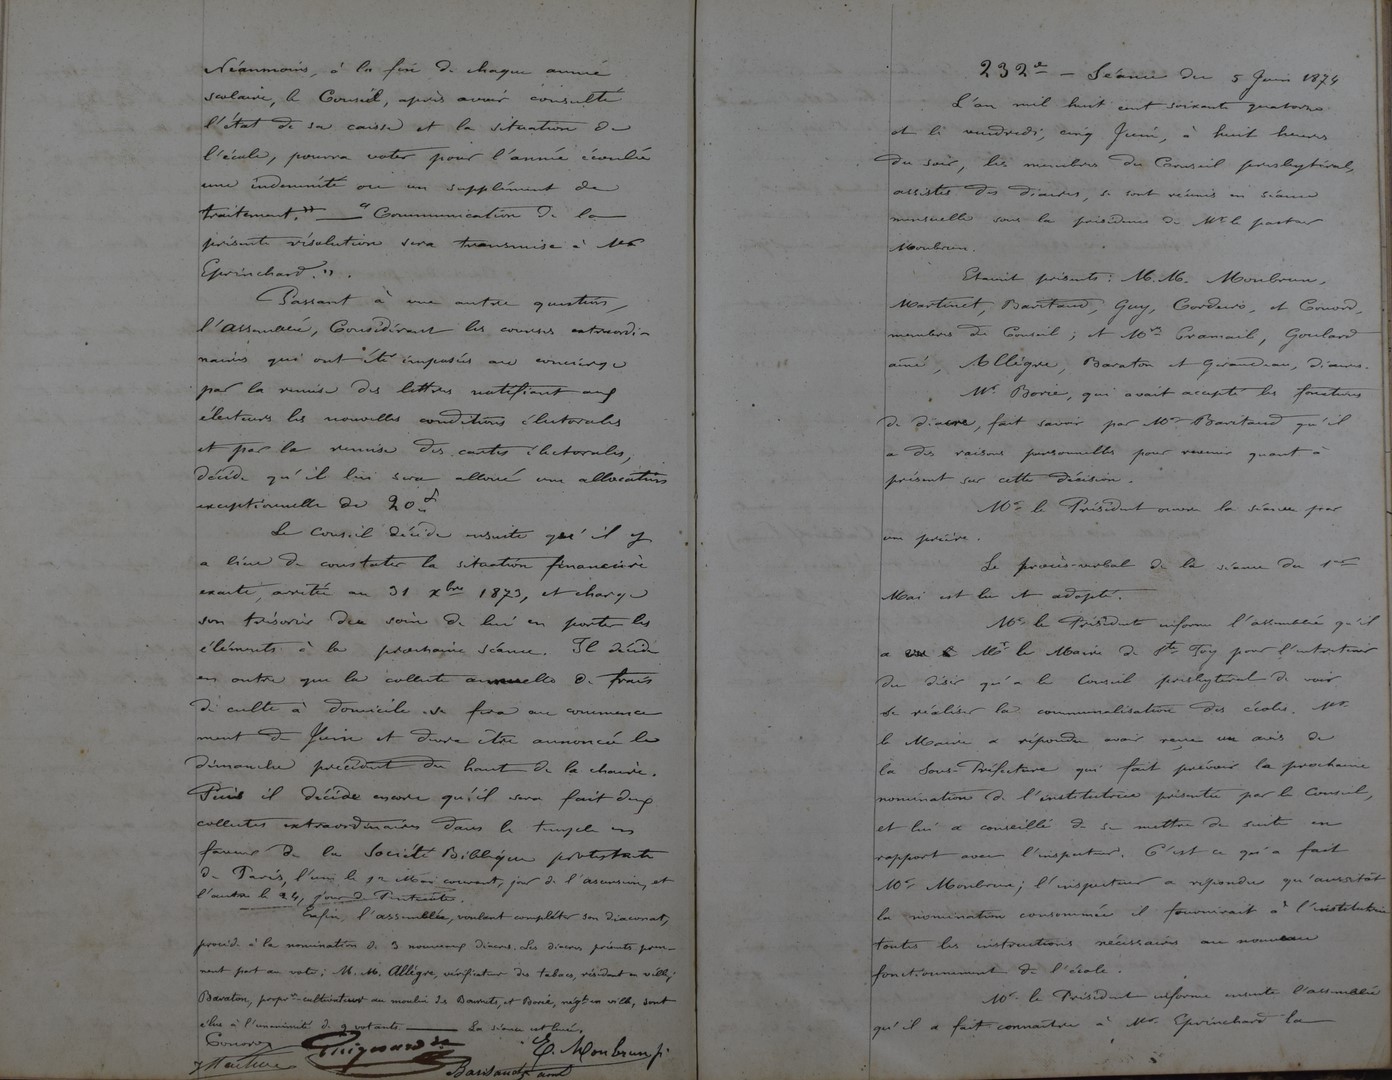 Néanmoins, à la fin de chaque année
scolaire, le Conseil, après avoir consulté
l'état de sa caisse et la situation de
l'école, pourra voter pour l'année écoulée
une indemnité ou un supplément de
traitement." — "Communication de la
présente résolution sera transmise à Mr
Eprinchard.".
Passant à une autre question,
l'Assemblée, Considérant les courses extraordi-
naires qui ont été imposées au concierge
par la remise des lettres notifiant aux
électeurs les nouvelles conditions électorales
et par la remise des cartes électorales,
décide qu'il lui sera alloué une allocation
exceptionnelle de 20 f
Le Conseil décide ensuite qu'il y
a lieu de constater la situation financière
exacte, arrêtée au 31 Xbre 1873, et charge
son trésorier du soin de lui en porter les
éléments à la prochaine séance. Il décide
en outre que la collecte annuelle de frais
de culte à domicile se fera au commence
ment de Juin et devra être annoncée le
dimanche précédent du haut de la chaire.
Puis il décide encore qu'il sera fait deux
collectes extraordinaires dans le temple en
faveur de la Société Biblique protestante
de Paris, l'une le Mai courant, jour de l'ascension, et
l'autre le 24, jour de Pentecôte.
Enfin, l'assemblée, voulant compléter son diaconat,
procède à la nomination de 3 nouveaux diacres. Les diacres présents pren-
nent part au vote; M.M. Allègre, vérificateur des tabacs, résidant en ville;
Baraton, propre-cultivateur au moulin des Barrets, et Borie, négt en ville, sont
élus à l'unanimité de 9 votants — La séance est levée.
Conord
Guignard E. Monbrun
Martinet Baritaud
232e — Séance du 5 Juin 1874
L'an mil huit cent soixante quatorze
et le vendredi, cinq Juin, à huit heures
du soir, les membres du Conseil presbytéral,
assistés des diacres, se sont réunis en séance
mensuelle sous la présidence de Mr le pasteur
Monbrun.
Etaient présents: M.M. Monbrun,
Martinet, Baritaud, Guy, Corderis, et Conord,
membres du Conseil; et Mrs Gramail, Goulard
aîné, Allègre, Baraton et Giraudeau, diacres.
Mr Borie, qui avait accepté les fonctions
de diacre, fait savoir par Mr Baritaud qu'il
a des raisons personnelles pour revenir quant à
présent sur cette décision.
Mr le Président ouvre la séance par
une prière.
Le procès-verbal de la séance du 1er
Mai est lu et adopté.
Mr le Président informe l'assemblée qu'il
a Mr le Maire de Ste Foy pour l'entretenir
du désir qu'a le Conseil presbytéral de voir
se réaliser la communalisation des écoles. Mr
le Maire a répondu avoir reçu un avis de
la Sous-Préfecture qui fait prévoir la prochaine
nomination de l'institutrice présentée par le Conseil,
et lui a conseillé de se mettre de suite en
rapport avec l'inspecteur. C'est ce qu'a fait
Mr Monbrun; l'inspecteur a répondu qu'aussitôt
la nomination consommée il fournirait à l'institutrice
toutes les instructions nécessaires au nouveau
fonctionnement de l'école.
Mr le Président informe ensuite l'assemblée
qu'il a fait connaître à Mr Eprinchard la